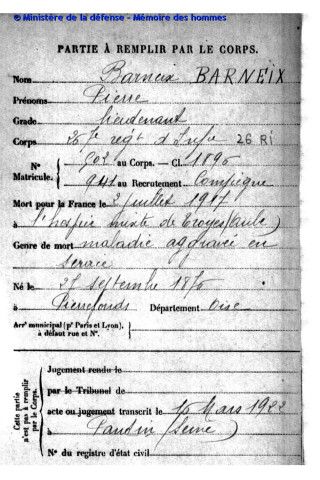 © Ministère de la défense - Mémoire des hommes
PARTIE À REMPLIR PAR LE CORPS.
Nom Barneix BARNEIX
Prénoms Pierre
Grade lieutenant
Corps 26 RI
N° Matricule. { 902 au Corps. — Cl. 1896
941 au Recrutement Compiègne
Mort pour la France le 2 juillet 1917
à l'hospice mixte de Troyes (Aube)
Genre de mort maladie aggravée en
service
Né le 27 septembre 1876
à Pierrefonds Département Oise
Arr^t municipal (p^r Paris et Lyon), à défaut rue et N°. {
Cette partie n'est pas à remplir par le Corps.
Jugement rendu le
par le Tribunal de
acte ou jugement transcrit le 15 Mars 1922
à Pantin (Seine)
N° du registre d'état civil